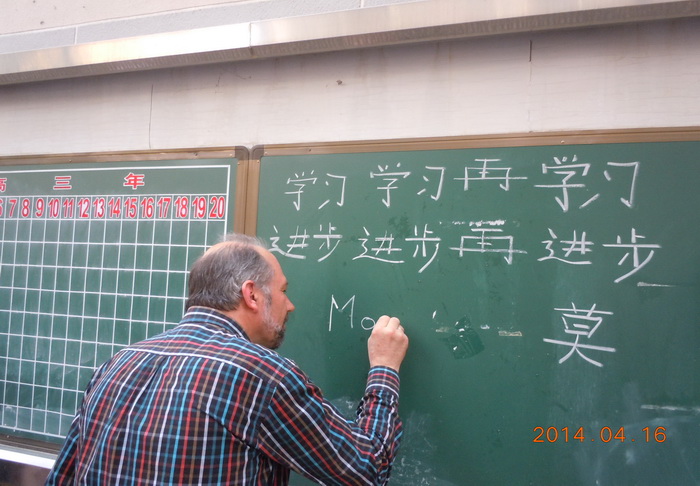 三 年
7 8 9 10 11 12 13 14 15 16 17 18 19 20
学习 学习 再 学习
进步 进步 再 进步
Mo
莫
2014.04.16